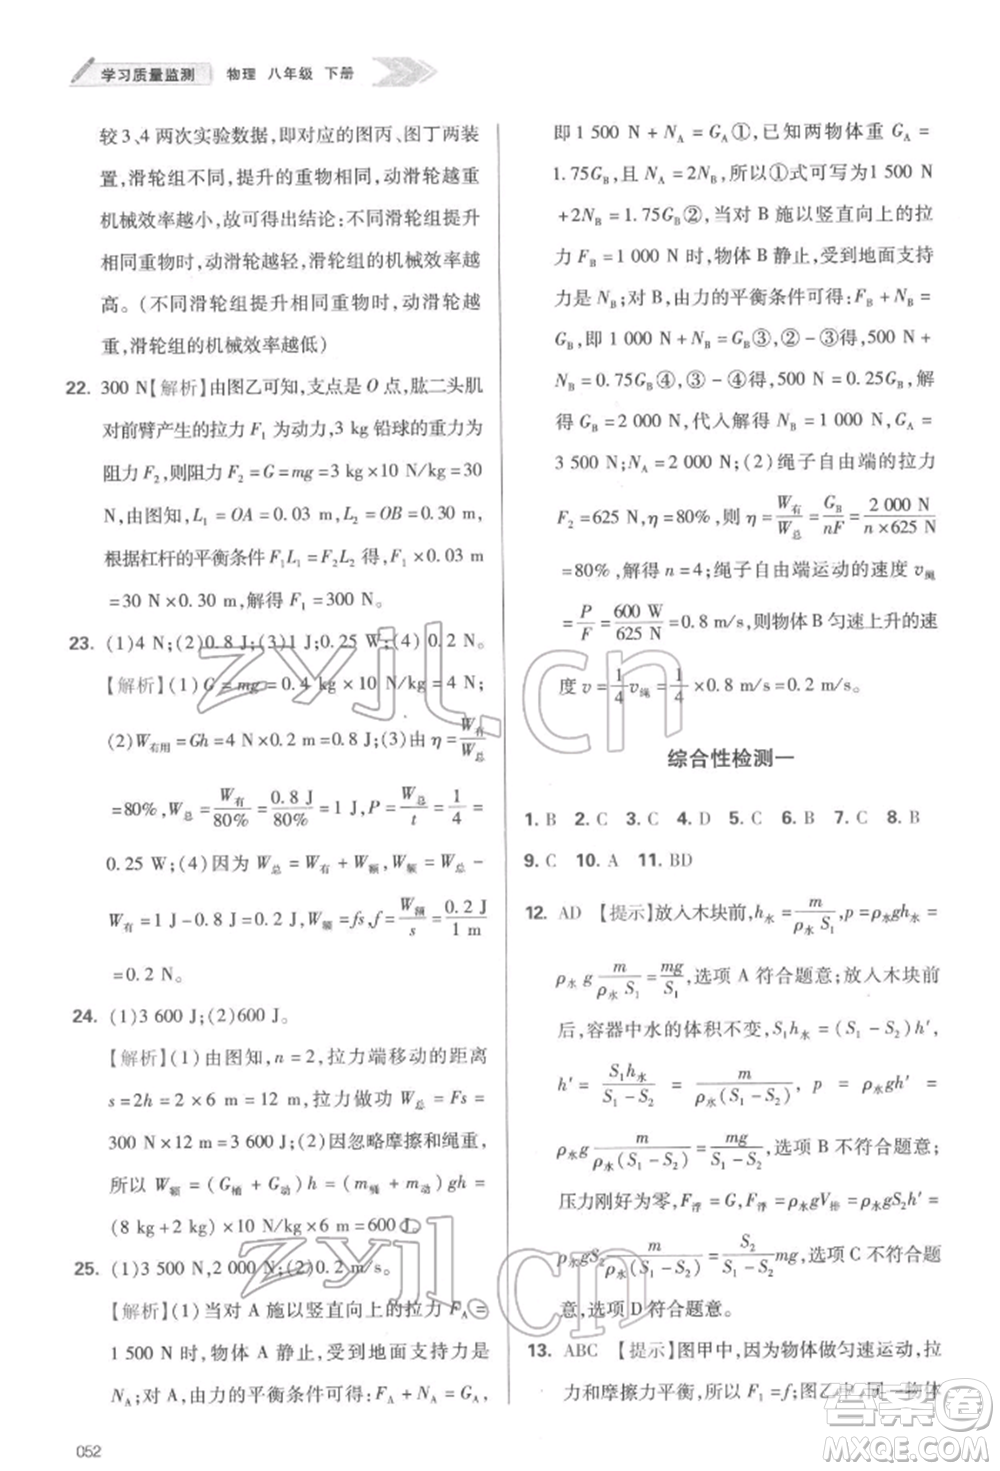 学习质量监测 物理 八年级 下册
较3、4两次实验数据,即对应的图丙、图丁两装
置,滑轮组不同,提升的重物相同,动滑轮越重
机械效率越小,故可得出结论:不同滑轮组提升
相同重物时,动滑轮越轻,滑轮组的机械效率越
高。(不同滑轮组提升相同重物时,动滑轮越
重,滑轮组的机械效率越低)
22. 300 N【解析】由图乙可知,支点是 O 点,肱二头肌
对前臂产生的拉力 F₁ 为动力,3 kg 铅球的重力为
阻力 F₂,则阻力 F₂=G=mg=3 kg×10 N/kg=30
N,由图知,L₁=OA=0.03 m,L₂=OB=0.30 m,
根据杠杆的平衡条件 F₁L₁=F₂L₂ 得,F₁×0.03 m
=30 N×0.30 m,解得 F₁=300 N。
23. (1)4 N;(2)0.8 J;(3)1 J;0.25 W;(4)0.2 N。
【解析】(1)G=mg=0.4 kg×10 N/kg=4 N;
(2)W有用=Gh=4 N×0.2 m=0.8 J;(3)由 η=W有/W总
=80%,W总=W有/80%=0.8 J/80%=1 J,P=W总/t=1/4=
0.25 W;(4)因为 W总=W有+W额,W额=W总-
W有=1 J-0.8 J=0.2 J,W额=fs,f=W额/s=0.2 J/1 m
=0.2 N。
24. (1)3 600 J;(2)600 J。
【解析】(1)由图知,n=2,拉力端移动的距离
s=2h=2×6 m=12 m,拉力做功 W总=Fs=
300 N×12 m=3 600 J;(2)因忽略摩擦和绳重,
所以 W额=(G桶+G动)h=(m桶+m动)gh=
(8 kg+2 kg)×10 N/kg×6 m=600 J。
25. (1)3 500 N,2 000 N;(2)0.2 m/s。
【解析】(1)当对 A 施以竖直向上的拉力 F_A=
1 500 N时,物体 A 静止,受到地面支持力是
N_A;对 A,由力的平衡条件可得:F_A+N_A=G_A,
052
即 1 500 N+N_A=G_A①,已知两物体重 G_A=
1.75G_B,且 N_A=2N_B,所以①式可写为1 500 N
+2N_B=1.75G_B②,当对 B 施以竖直向上的拉
力 F_B=1 000 N 时,物体B静止,受到地面支持
力是 N_B;对B,由力的平衡条件可得:F_B+N_B=
G_B,即 1 000 N+N_B=G_B③,②-③得,500 N+
N_B=0.75G_B④,③-④得,500 N=0.25G_B,解
得 G_B=2 000 N,代入解得 N_B=1 000 N,G_A=
3 500 N;N_A=2 000 N;(2)绳子自由端的拉力
F₂=625 N,η=80%,则 η=W有/W总=G_B/nF=2 000 N/n×625 N
=80%,解得 n=4;绳子自由端运动的速度 v绳
=P/F=600 W/625 N=0.8 m/s,则物体 B 匀速上升的速
度 v=1/4 v绳=1/4×0.8 m/s=0.2 m/s。
综合性检测一
1. B 2. C 3. C 4. D 5. C 6. B 7. C 8. B
9. C 10. A 11. BD
12. AD 【提示】放入木块前,h水=m/ρ水S₁,p=ρ水gh水=
ρ水g m/ρ水S₁=mg/S₁,选项 A 符合题意;放入木块前
后,容器中水的体积不变,S₁h水=(S₁-S₂)h′,
h′=S₁h水/S₁-S₂=m/ρ水(S₁-S₂),p=ρ水gh′=
ρ水g m/ρ水(S₁-S₂)=mg/S₁-S₂,选项 B 不符合题意;
压力刚好为零,F浮=G,F浮=ρ水gV排=ρ水gS₂h′=
ρ水gS₂ m/ρ水(S₁-S₂)=S₂/S₁-S₂ mg,选项 C 不符合题
意,选项 D 符合题意。
13. ABC 【提示】图甲中,因为物体做匀速运动,拉
力和摩擦力平衡,所以 F₁=f;图乙中,同一物体
zyjl.cn
zyjl.cn
答案圈
MXQE.COM